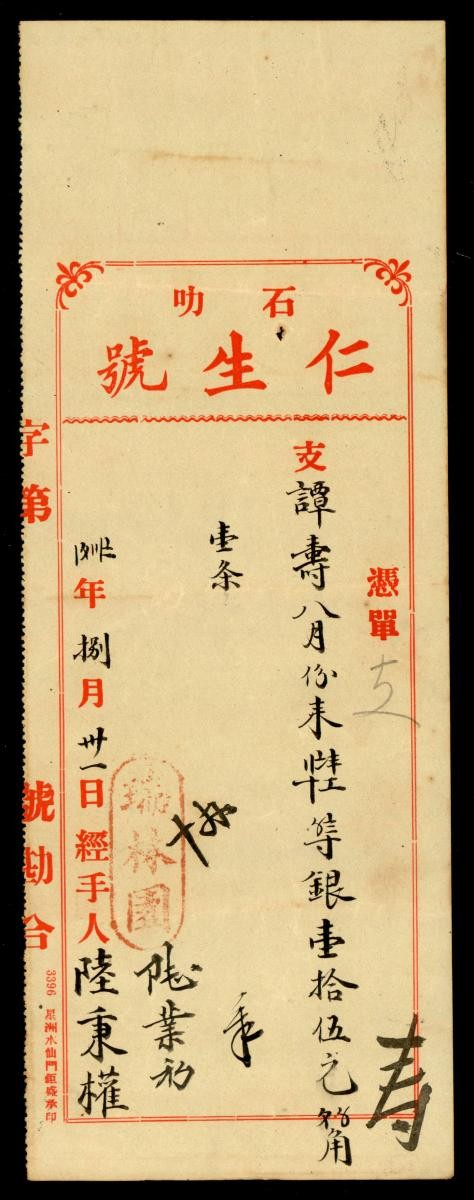 石叻
仁生號
憑單
支
壽
支譚壽八月份來
等銀壹拾伍元
角
壹条
年捌月卅一日經手人陸秉權
瑞林園
字第
號勘合
3396 星洲水仙門鉅盛承印